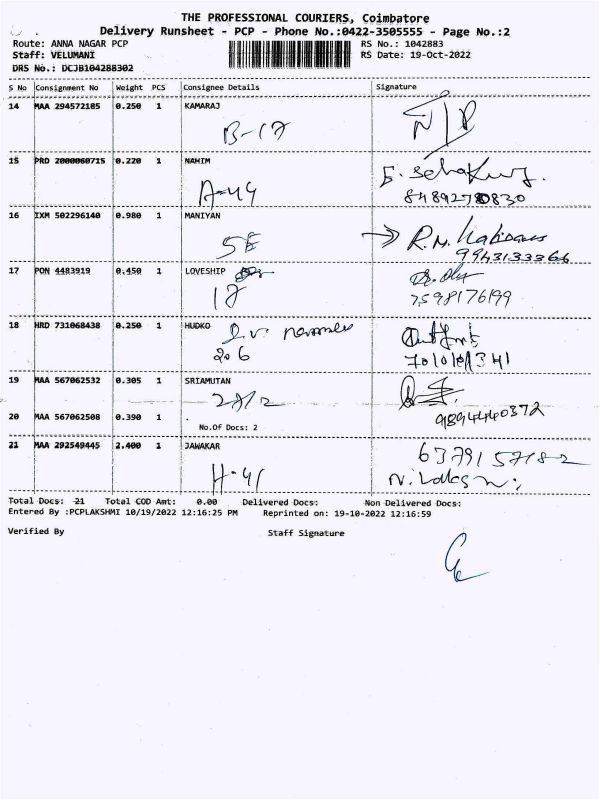 THE PROFESSIONAL COURIERS, Coimbatore
Delivery Runsheet - PCP - Phone No.:0422-3505555 - Page No.:2
Route: ANNA NAGAR PCP RS No.: 1042883
Staff: VELUMANI RS Date: 19-Oct-2022
DRS No.: DCJB104288302
S No Consignment No Weight PCS Consignee Details Signature
14 MAA 294572185 0.250 1 KAMARAJ
B-17
15 PRD 2000060715 0.220 1 NAHIM
A-44 8489278830
16 IXM 502296140 0.980 1 MANIYAN
5E 9943133366
17 PON 4483919 0.450 1 LOVESHIP
17 7598176199
18 HRD 731068438 0.250 1 HUDKO
206
19 MAA 567062532 0.305 1 SRIAMUTAN
28/2 9894440372
20 MAA 567062508 0.390 1 .
No.Of Docs: 2
21 MAA 292549445 2.400 1 JAWAKAR
H-41 6379157182
Total Docs: 21 Total COD Amt: 0.00 Delivered Docs: Non Delivered Docs:
Entered By :PCPLAKSHMI 10/19/2022 12:16:25 PM Reprinted on: 19-10-2022 12:16:59
Verified By Staff Signature